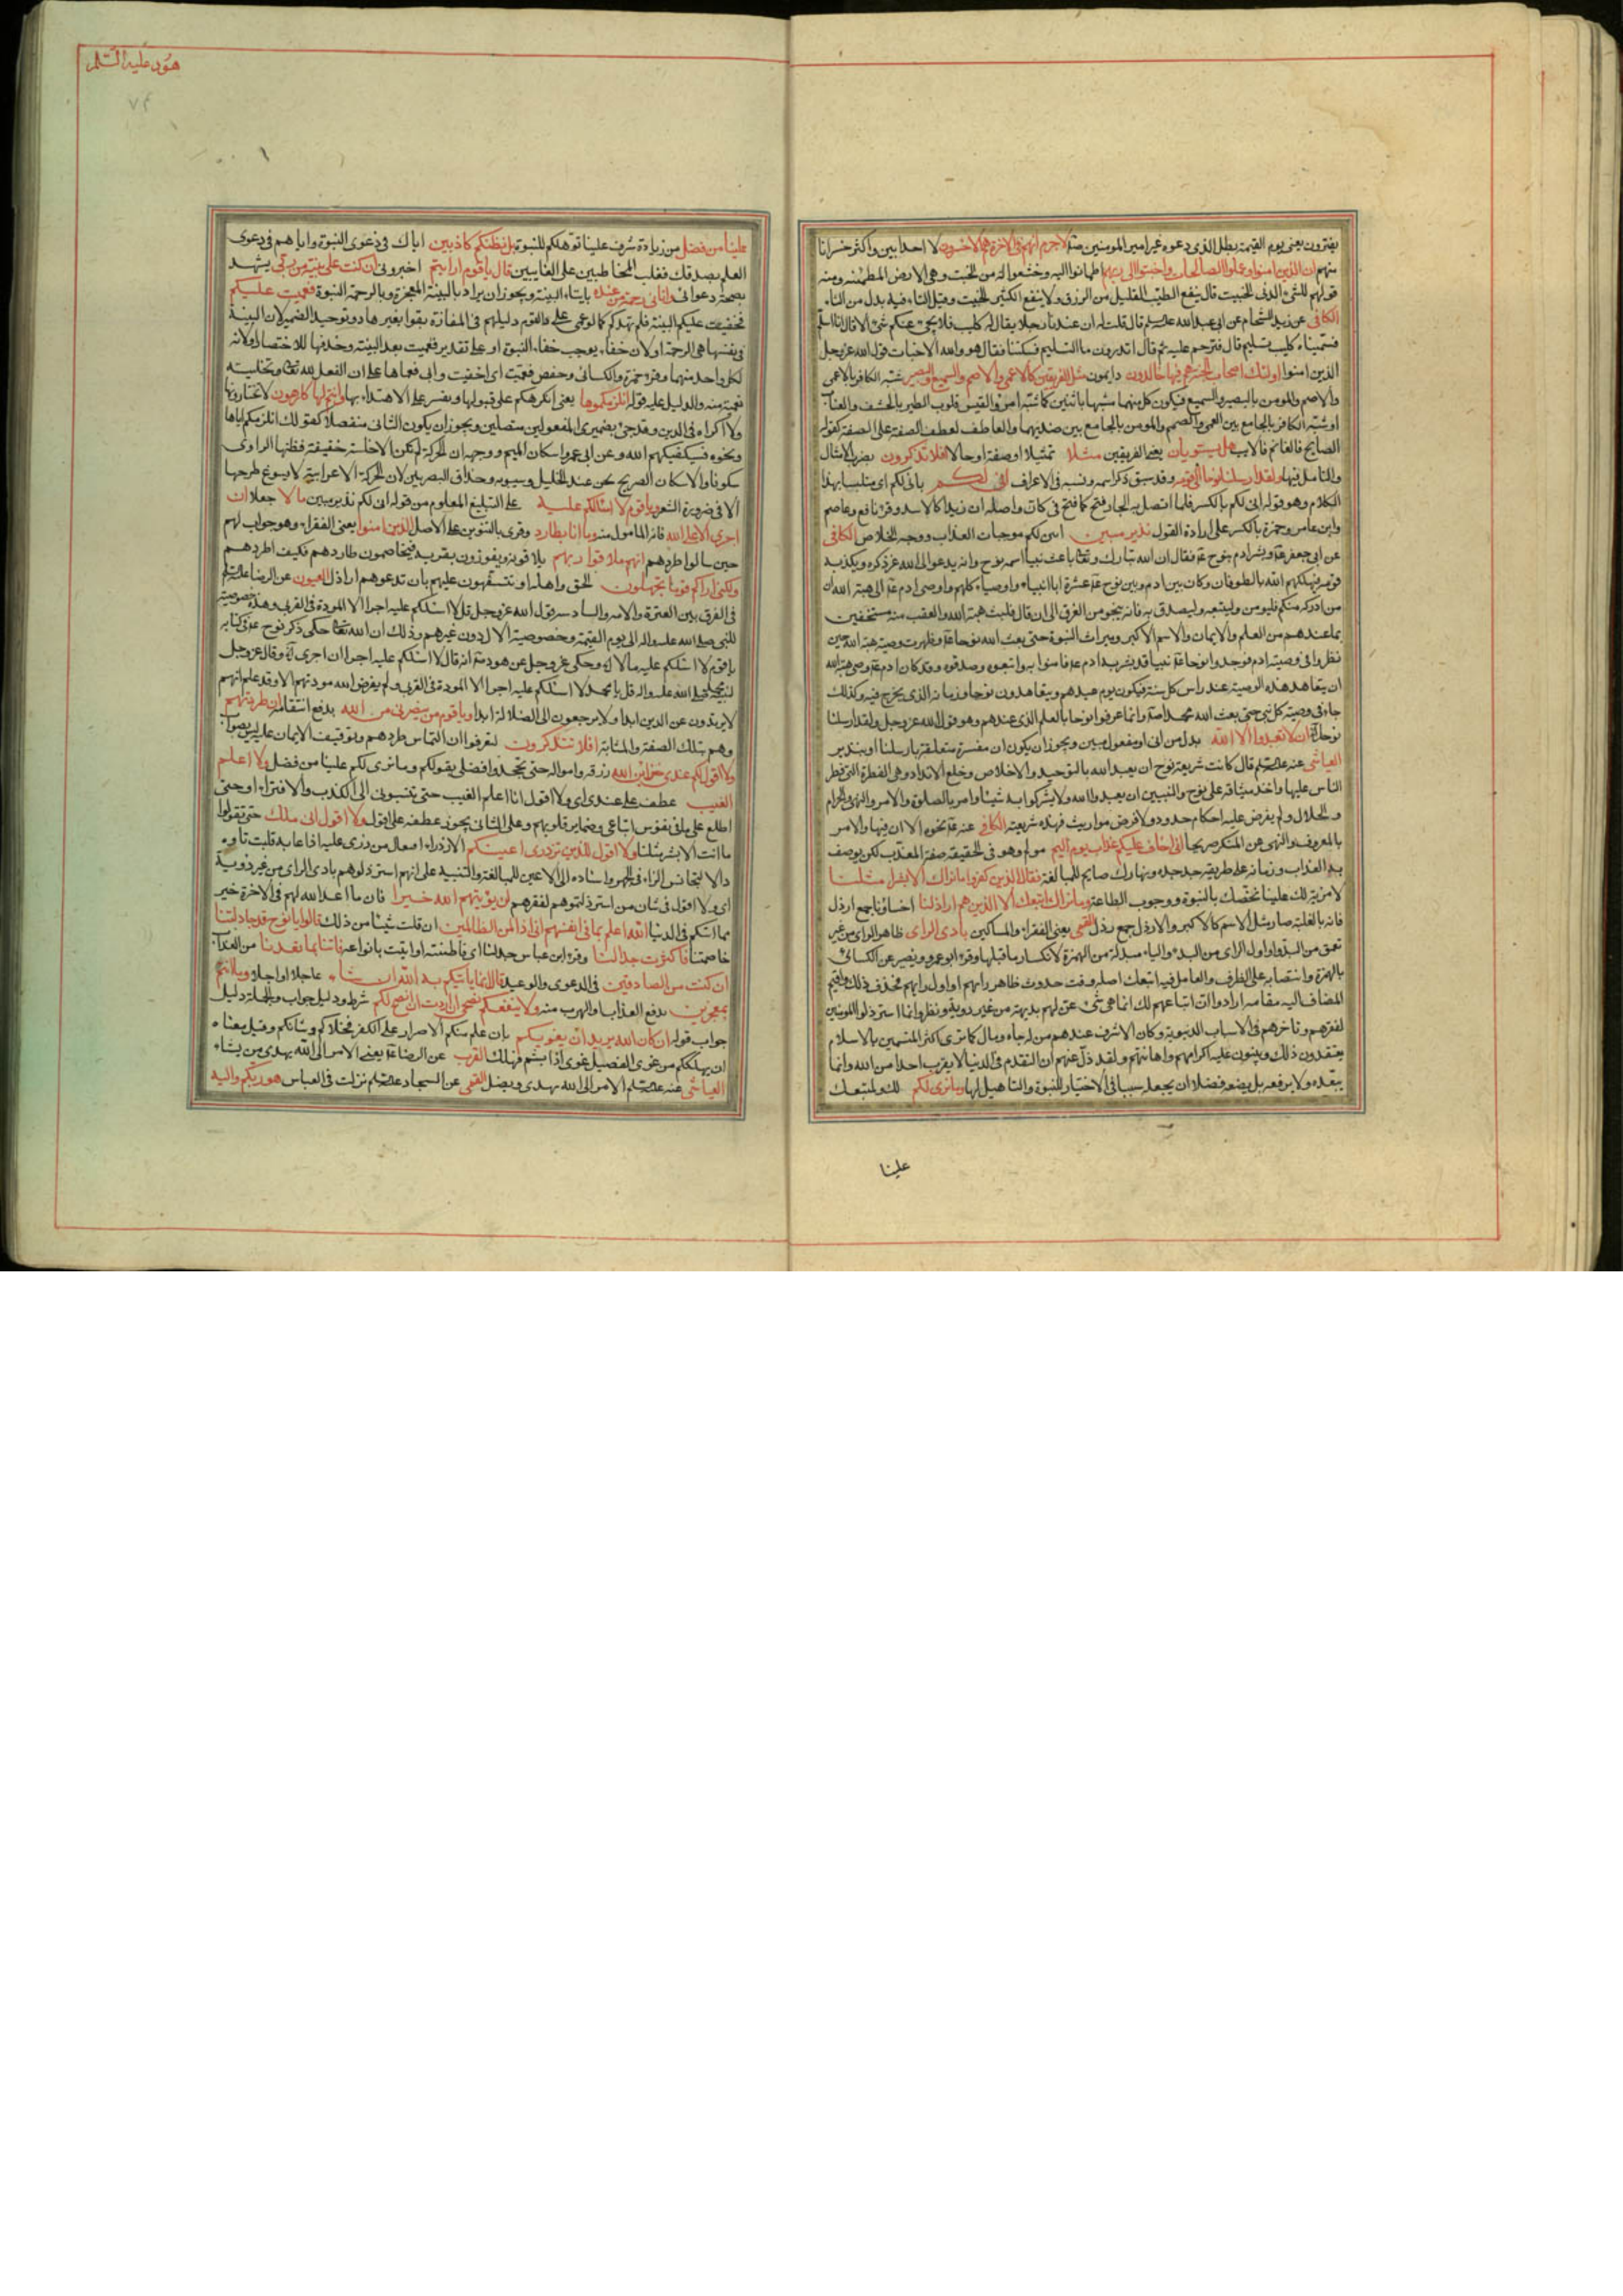 يفترون يعني يوم القيمة بطل الذي دعوه غير امير المومنين لا جرم انهم في الاخرة هم الاخسرون لا احد ابين واكثر خسرانا
منهم ان الذين امنوا وعملوا الصالحات واخبتوا الى ربهم اطمانوا اليه وخشعوا له من الخبت وهي الارض المطمئنة ومنه
قولهم للشئ الدني الخبيت قال ينفع الطيب القليل من الرزق ولا ينفع الكثير الخبيت وقيل التاء فيه بدل من الثاء
الكافي عن زيد الشحام عن ابي عبد الله قال قلت له ان عندنا رجلا يقال له كليب فلا يجئ عنكم شئ الا قال انا اسلم
فسميناه كليب تسليم قال فترحم عليه ثم قال اتدرون ما التسليم فسكتنا فقال هو والله الاخبات قول الله عز وجل
الذين امنوا اولئك اصحاب الجنة هم فيها خالدون دايمون مثل الفريقين كالاعمى والاصم والسميع والبصير شبه الكافر بالاعمى
والاصم والمومن بالبصير والسميع فيكون كل منهما مشبها باثنين كما شبه امرؤ القيس قلوب الطير بالحشف والعناب
او شبه الكافر بالجامع بين العمى والصمم والمومن بالجامع بين ضديهما والعاطف لعطف الصفة على الصفة كقوله
الصابح فالغانم فالايب هل يستويان يعني الفريقين مثلا تمثيلا او صفة او حالا افلا تذكرون بضرب الامثال
والتامل فيها ولقد ارسلنا نوحا الى قومه وقد سبق ذكر اسمه ونسبه في الاعراف اني لكم باني لكم اي متلبسا بهذا
الكلام وهو قوله اني لكم بالكسر فلما اتصل به الجار فتح كما فتح في كان واصله ان زيدا كالاسد وقرئ نافع وعاصم
وابن عامر وحمزة بالكسر على ارادة القول نذير مبين ابين لكم موجبات العذاب ووجه الخلاص الكافي
عن ابي جعفر بشر ادم بنوح فقال ان الله تبارك وتعالى باعث نبيا اسمه نوح وانه يدعو الى الله عز ذكره ويكذبه
قومه فيهلكهم الله بالطوفان وكان بين ادم وبين نوح عشرة اباء انبياء واوصياء كلهم واوصى ادم الى هبة الله ان
من ادركه منكم فليومن وليتبعه وليصدق به فانه ينجو من الغرق الى ان قال فلبث هبة الله والعقب منه مستخفين
بما عندهم من العلم والايمان والاسم الاكبر وميراث النبوة حتى بعث الله نوحا وظهرت وصية هبة الله حين
نظروا في وصية ادم فوجدوا نوحا نبيا قد بشر به ادم فامنوا به واتبعوه وصدقوه وقد كان ادم وصى هبة الله
ان يتعاهد هذه الوصية عند راس كل سنة فيكون يوم عيدهم ويتعاهدون نوحا وزمانه الذي يخرج فيه وكذلك
جاء في وصية كل نبي حتى بعث الله محمدا وانما عرفوا نوحا بالعلم الذي عندهم وهو قول الله عز وجل ولقد ارسلنا
نوحا ان لا تعبدوا الا الله بدل من اني او مفعول مبين ويجوز ان يكون ان مفسرة متعلقة بارسلنا او بنذير
العياشي عنه قال كانت شريعة نوح ان يعبد الله بالتوحيد والاخلاص وخلع الانداد وهي الفطرة التي فطر
الناس عليها واخذ ميثاقه على نوح والنبيين ان يعبدوا الله ولا يشركوا به شيئا وامر بالصلوة والامر والنهي والحرام
والحلال ولم يفرض عليه احكام حدود ولا فرض مواريث فهذه شريعته الكافي عنه نحوه الا ان فيها والامر
بالمعروف والنهي عن المنكر صريحا اني اخاف عليكم عذاب يوم اليم مولم وهو في الحقيقة صفة المعذب لكن يوصف
به العذاب وزمانه على طريقة جد جده ونهارك صايم للمبالغة فقال الملا الذين كفروا ما نراك الا بشرا مثلنا
لا مزية لك علينا تخصك بالنبوة ووجوب الطاعة وما نراك اتبعك الا الذين هم اراذلنا اخساؤنا جمع ارذل
فانه بالغلبة صار مثل الاسم كالاكبر والارذل جمع رذل القمي يعني الفقراء والمساكين بادي الراي ظاهر الراي من غير
تعمق من البدو او اول الراي من البدء والياء مبدلة من الهمزة لانكسار ما قبلها وقرء ابو عمرو ونصير عن الكسائي
بالهمزة وانتصابه على الظرف والعامل فيه اتبعك اصله وقت حدوث ظاهر رايهم او اول رايهم فحذف ذلك واقيم
المضاف اليه مقامه ارادوا ان اتباعهم لك انما هي شئ عن لهم بديهة من غير روية ونظر وانما استرذلوا المومنين
لفقرهم وتاخرهم في الاسباب الدنيوية وكان الاشرف عندهم من له جاه ومال كما ترى اكثر المتسمين بالاسلام
يعتقدون ذلك ويبنون عليه اكرامهم واهانتهم ولقد ذل عنهم ان التقدم في الدنيا لا يقرب احدا من الله وانما
يبعده ولا يرفعه بل يضعه فضلا ان يجعله سببا في الاختيار للنبوة والتاهيل لها وما نرى لكم لك ولمتبعك
علينا
هود عليه السلم
علينا من فضل من زيادة شرف علينا توهلكم للنبوة بل نظنكم كاذبين اياك في دعوى النبوة واياهم في دعوى
العلم بصدقك فغلب المخاطبين على الغايبين قال يا قوم ارايتم اخبروني ان كنت على بينة من ربي يشهد
بصحة دعواي واتاني رحمة من عنده بايتاء البينة ويجوز ان يراد بالبينة المعجزة وبالرحمة النبوة فعميت عليكم
فخفيت عليكم البينة فلم تهدكم كما لو عمي على القوم دليلهم في المفازة بقوا بغير هاد وتوحيد الضمير لان البينة
في نفسها هي الرحمة او لان خفاءه يوجب خفاء النبوة او على تقدير فعميت بعد البينة وحذفها للاختصار او لانه
لكل واحد منهما وقرء حمزة والكسائي وحفص فعميت اي اخفيت وابي فعماها على ان الفعل لله تعالى وتخليته
تعمية منه والدليل عليه قوله انلزمكموها يعني انكرهكم على قبولها ونقسركم على الاهتداء بها وانتم لها كارهون لا تختارونها
ولا اكراه في الدين وقد جئ بضميري المفعولين متصلين ويجوز ان يكون الثاني منفصلا كقولك انلزمكم اياها
ونحوه فسيكفيكهم الله وعن ابي عمرو اسكان الميم ووجهه ان الحركة لم تكن الا خلسة خفيفة فظنها الراوي
سكونا والاسكان الصريح لحن عند الخليل وسيبويه وحذاق البصريين لان الحركة الاعرابية لا يسوغ طرحها
الا في ضرورة الشعر ويا قوم لا اسئلكم عليه على التبليغ المعلوم من قوله اني لكم نذير مبين مالا جعلا ان
اجري الا على الله فانه المامول منه وما انا بطارد وقرئ بالتنوين على الاصل الذين امنوا يعني الفقراء وهو جواب لهم
حين سالوا طردهم انهم ملاقوا ربهم يلاقونه ويفوزون بقربه فيخاصمون طاردهم فكيف اطردهم
ولكني اراكم قوما تجهلون الحق واهله او تتسفهون عليهم بان تدعوهم اراذل العيون عن الرضا
في الفرق بين العترة والامة والسادسة قول الله عز وجل قل لا اسئلكم عليه اجرا الا المودة في القربى وهذه خصوصية
للنبي صلى الله عليه واله الى يوم القيمة وخصوصية الال دون غيرهم وذلك ان الله تعالى حكى ذكر نوح في كتابه
يا قوم لا اسئلكم عليه مالا وحكى عز وجل عن هود انه قال لا اسئلكم عليه اجرا ان اجري وقال عز وجل
لنبيه صلى الله عليه واله قل يا محمد لا اسئلكم عليه اجرا الا المودة في القربى ولم يفرض الله مودتهم الا وقد علم انهم
لا يرتدون عن الدين ابدا ولا يرجعون الى الضلالة ابدا ويا قوم من ينصرني من الله بدفع انتقامه ان طردتهم
وهم بتلك الصفة والمثابة افلا تتذكرون لتعرفوا ان التماس طردهم وتوقيف الايمان عليه ليس بصواب
ولا اقول لكم عندي خزاين الله رزقه وامواله حتى تجحدوا فضلي بقولكم وما نرى لكم علينا من فضل ولا اعلم
الغيب عطف على عندي اي ولا اقول انا اعلم الغيب حتى تنسبوني الى الكذب والافتراء او حتى
اطلع على ما في نفوس اتباعي وضماير قلوبهم وعلى الثاني يجوز عطفه على اقول ولا اقول اني ملك حتى تقولوا
ما انت الا بشر مثلنا ولا اقول للذين تزدري اعينكم الازدراء افتعال من زرى عليه اذا عابه قلبت تاوه
دالا لتجانس الزاء في الجهر واسناده الى الاعين للمبالغة والتنبيه على انهم استرذلوهم بادي الراي من غير روية
اي ولا اقول في شان من استرذلتموهم لفقرهم لن يؤتيهم الله خيرا فان ما اعد الله لهم في الاخرة خير
مما اتيكم في الدنيا الله اعلم بما في انفسهم اني اذا لمن الظالمين ان قلت شيئا من ذلك قالوا يا نوح قد جادلتنا
خاصمتنا فاكثرت جدالنا وقرء ابن عباس جدلنا اي فاطنته او اتيت بانواعه فاتنا بما تعدنا من العذاب
ان كنت من الصادقين في الدعوى والوعيد قال انما ياتيكم به الله ان شاء عاجلا او اجلا وما انتم
بمعجزين بدفع العذاب او الهرب منه ولا ينفعكم نصحي ان اردت ان انصح لكم شرط ودليل جواب والجملة دليل
جواب قوله ان كان الله يريد ان يغويكم بان علم منكم الاصرار على الكفر فخلاكم وشانكم وقيل معناه
ان يهلككم من غوى الفصيل غوى اذا بشم فهلك القرب عن الرضا يعني الامر الى الله يهدي من يشاء
العياشي عنه الامر الى الله يهدي ويضل القمي عن السجاد نزلت في العباس هو ربكم واليه